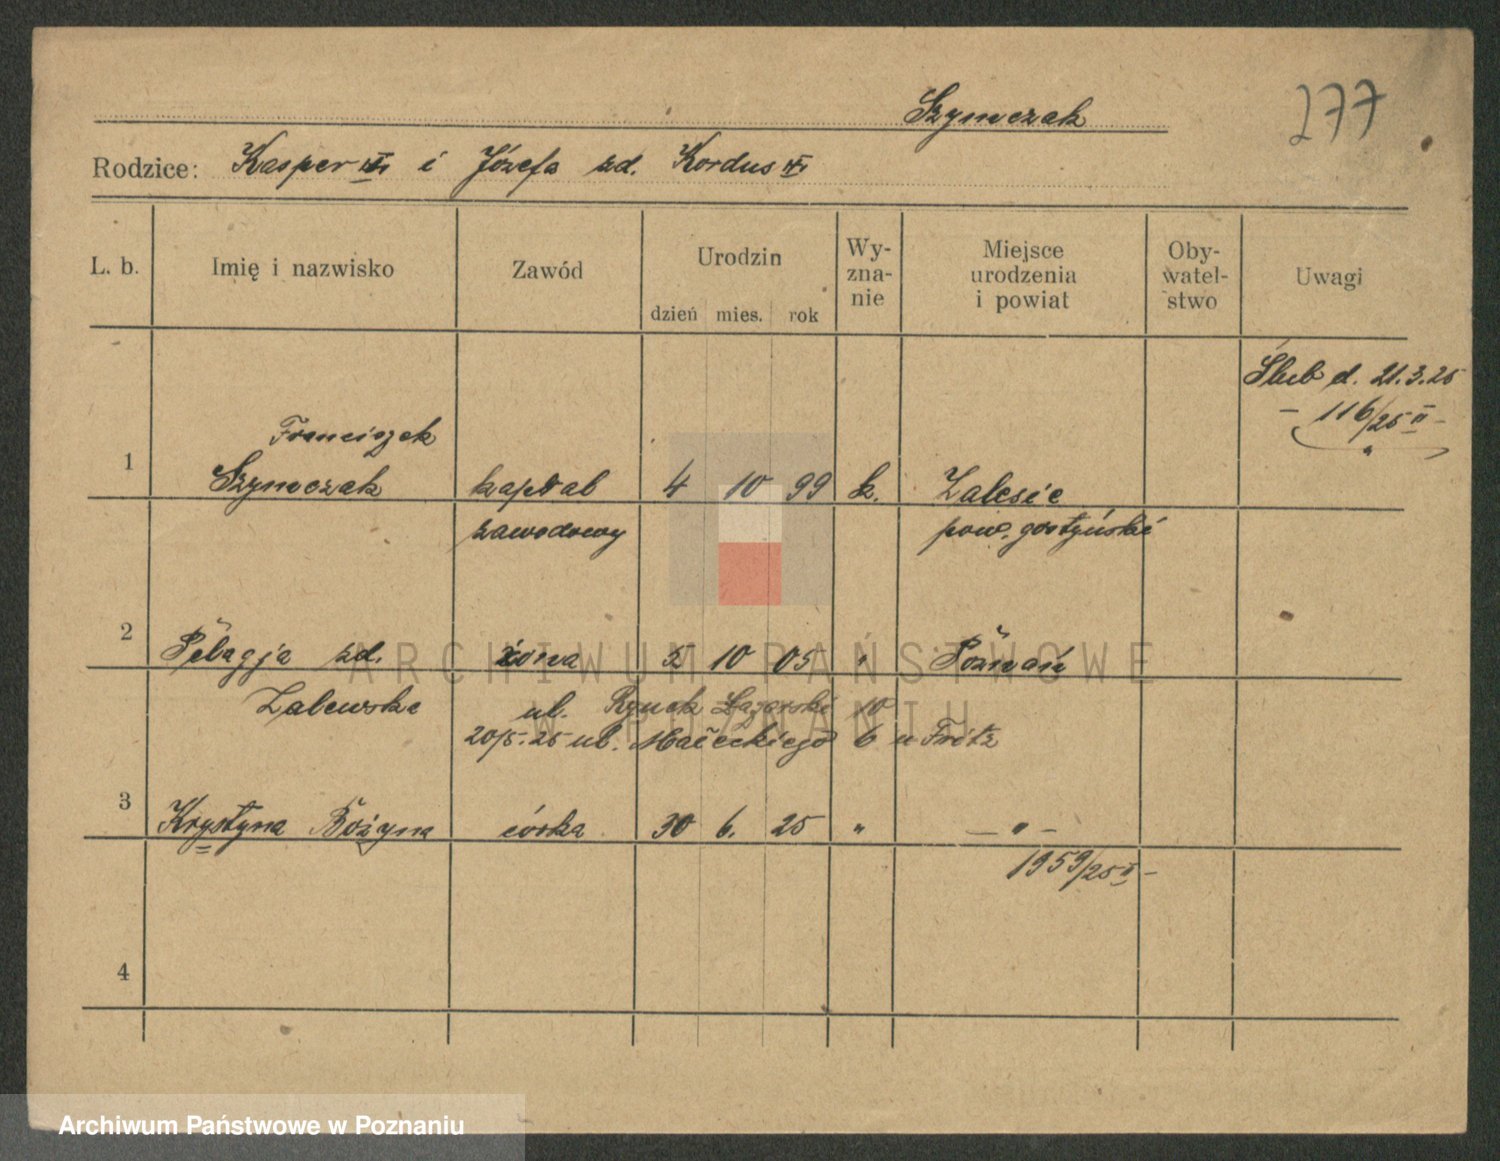 Szymczak
277
Rodzice: Kasper i Józefa zd. Kordus
L. b. Imię i nazwisko Zawód Urodzin dzień mies. rok Wy-zna-nie Miejsce urodzenia i powiat Oby-watel-stwo Uwagi
Ślub d. 21.3.25
– 116/25 II –
Franciszek
1 Szymczak kapral 4 10 99 k. Zalesie
zawodowy pow. gostyński
2 Pelagja zd. żona 5 10 05 " Poznań
Zalewska ul. Rynek Łazarski 10
20/5.25 ul. Małeckiego 6 u Fritz
3 Krystyna Bożyna córka 30 6. 25 " – " –
1959/25 II –
4
ARCHIWUM PAŃSTWOWE
W POZNANIU
Archiwum Państwowe w Poznaniu